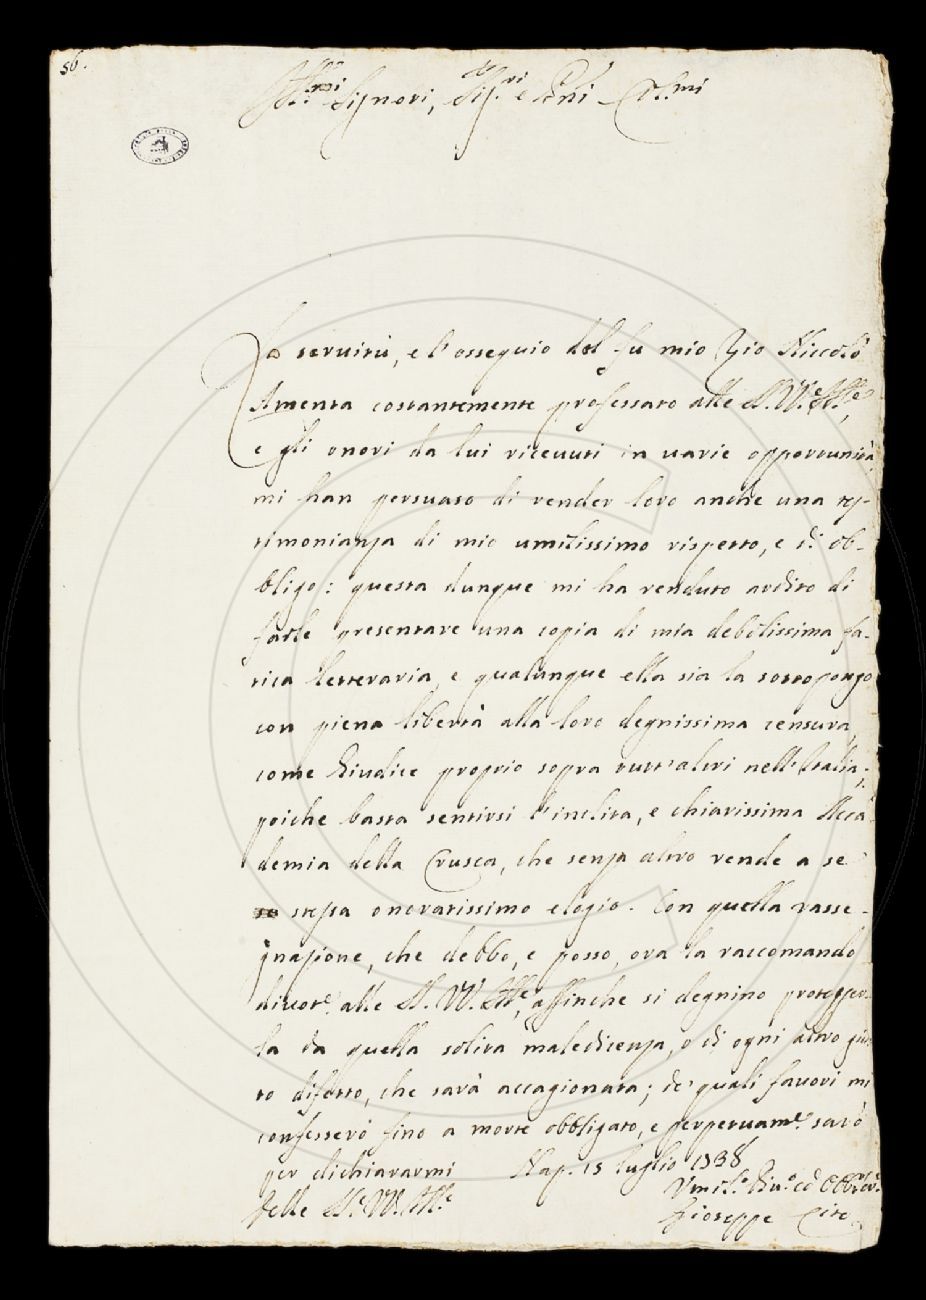 56.
Ill.mi Signori, Sig.ri e P̄ni Col.mi
La seruitù, e l'ossequio del fu mio Zio Niccolò
Amenta costantemente professato alle SS. VV. Ill.e,
e gli onori da lui riceuuti in uarie opportunità
mi han persuaso di render loro anche una tes-
timonianza di mio umilissimo rispetto, e di ob-
bligo: questa dunque mi ha renduto ardito di
farle presentare una copia di mia debolissima fa-
tica letteraria, e qualunque ella sia la sottopongo
con piena libertà alla loro degnissima censura,
come Giudice proprio sopra tutt'altri nell'Italia;
poiche basta sentirsi l'inclita, e chiarissima Acca-
demia della Crusca, che senza altro rende a se
stessa onoratissimo elogio. Con quella rasse-
gnazione, che debbo, e posso, ora la raccomando
diuot.e alle SS. VV. Ill.e, affinche si degnino protegger-
la da quella solita maledicenza, o di ogni altro gius-
to difetto, che sarà accagionata; de' quali fauori mi
confesserò fino a morte obbligato, e perpetuam.e sarò
per dichiararmi Nap. 15 luglio 1738
Delle SS. VV. Ill.e
Vmil.o Diu.o ed Obb.
Gioseppe Cito